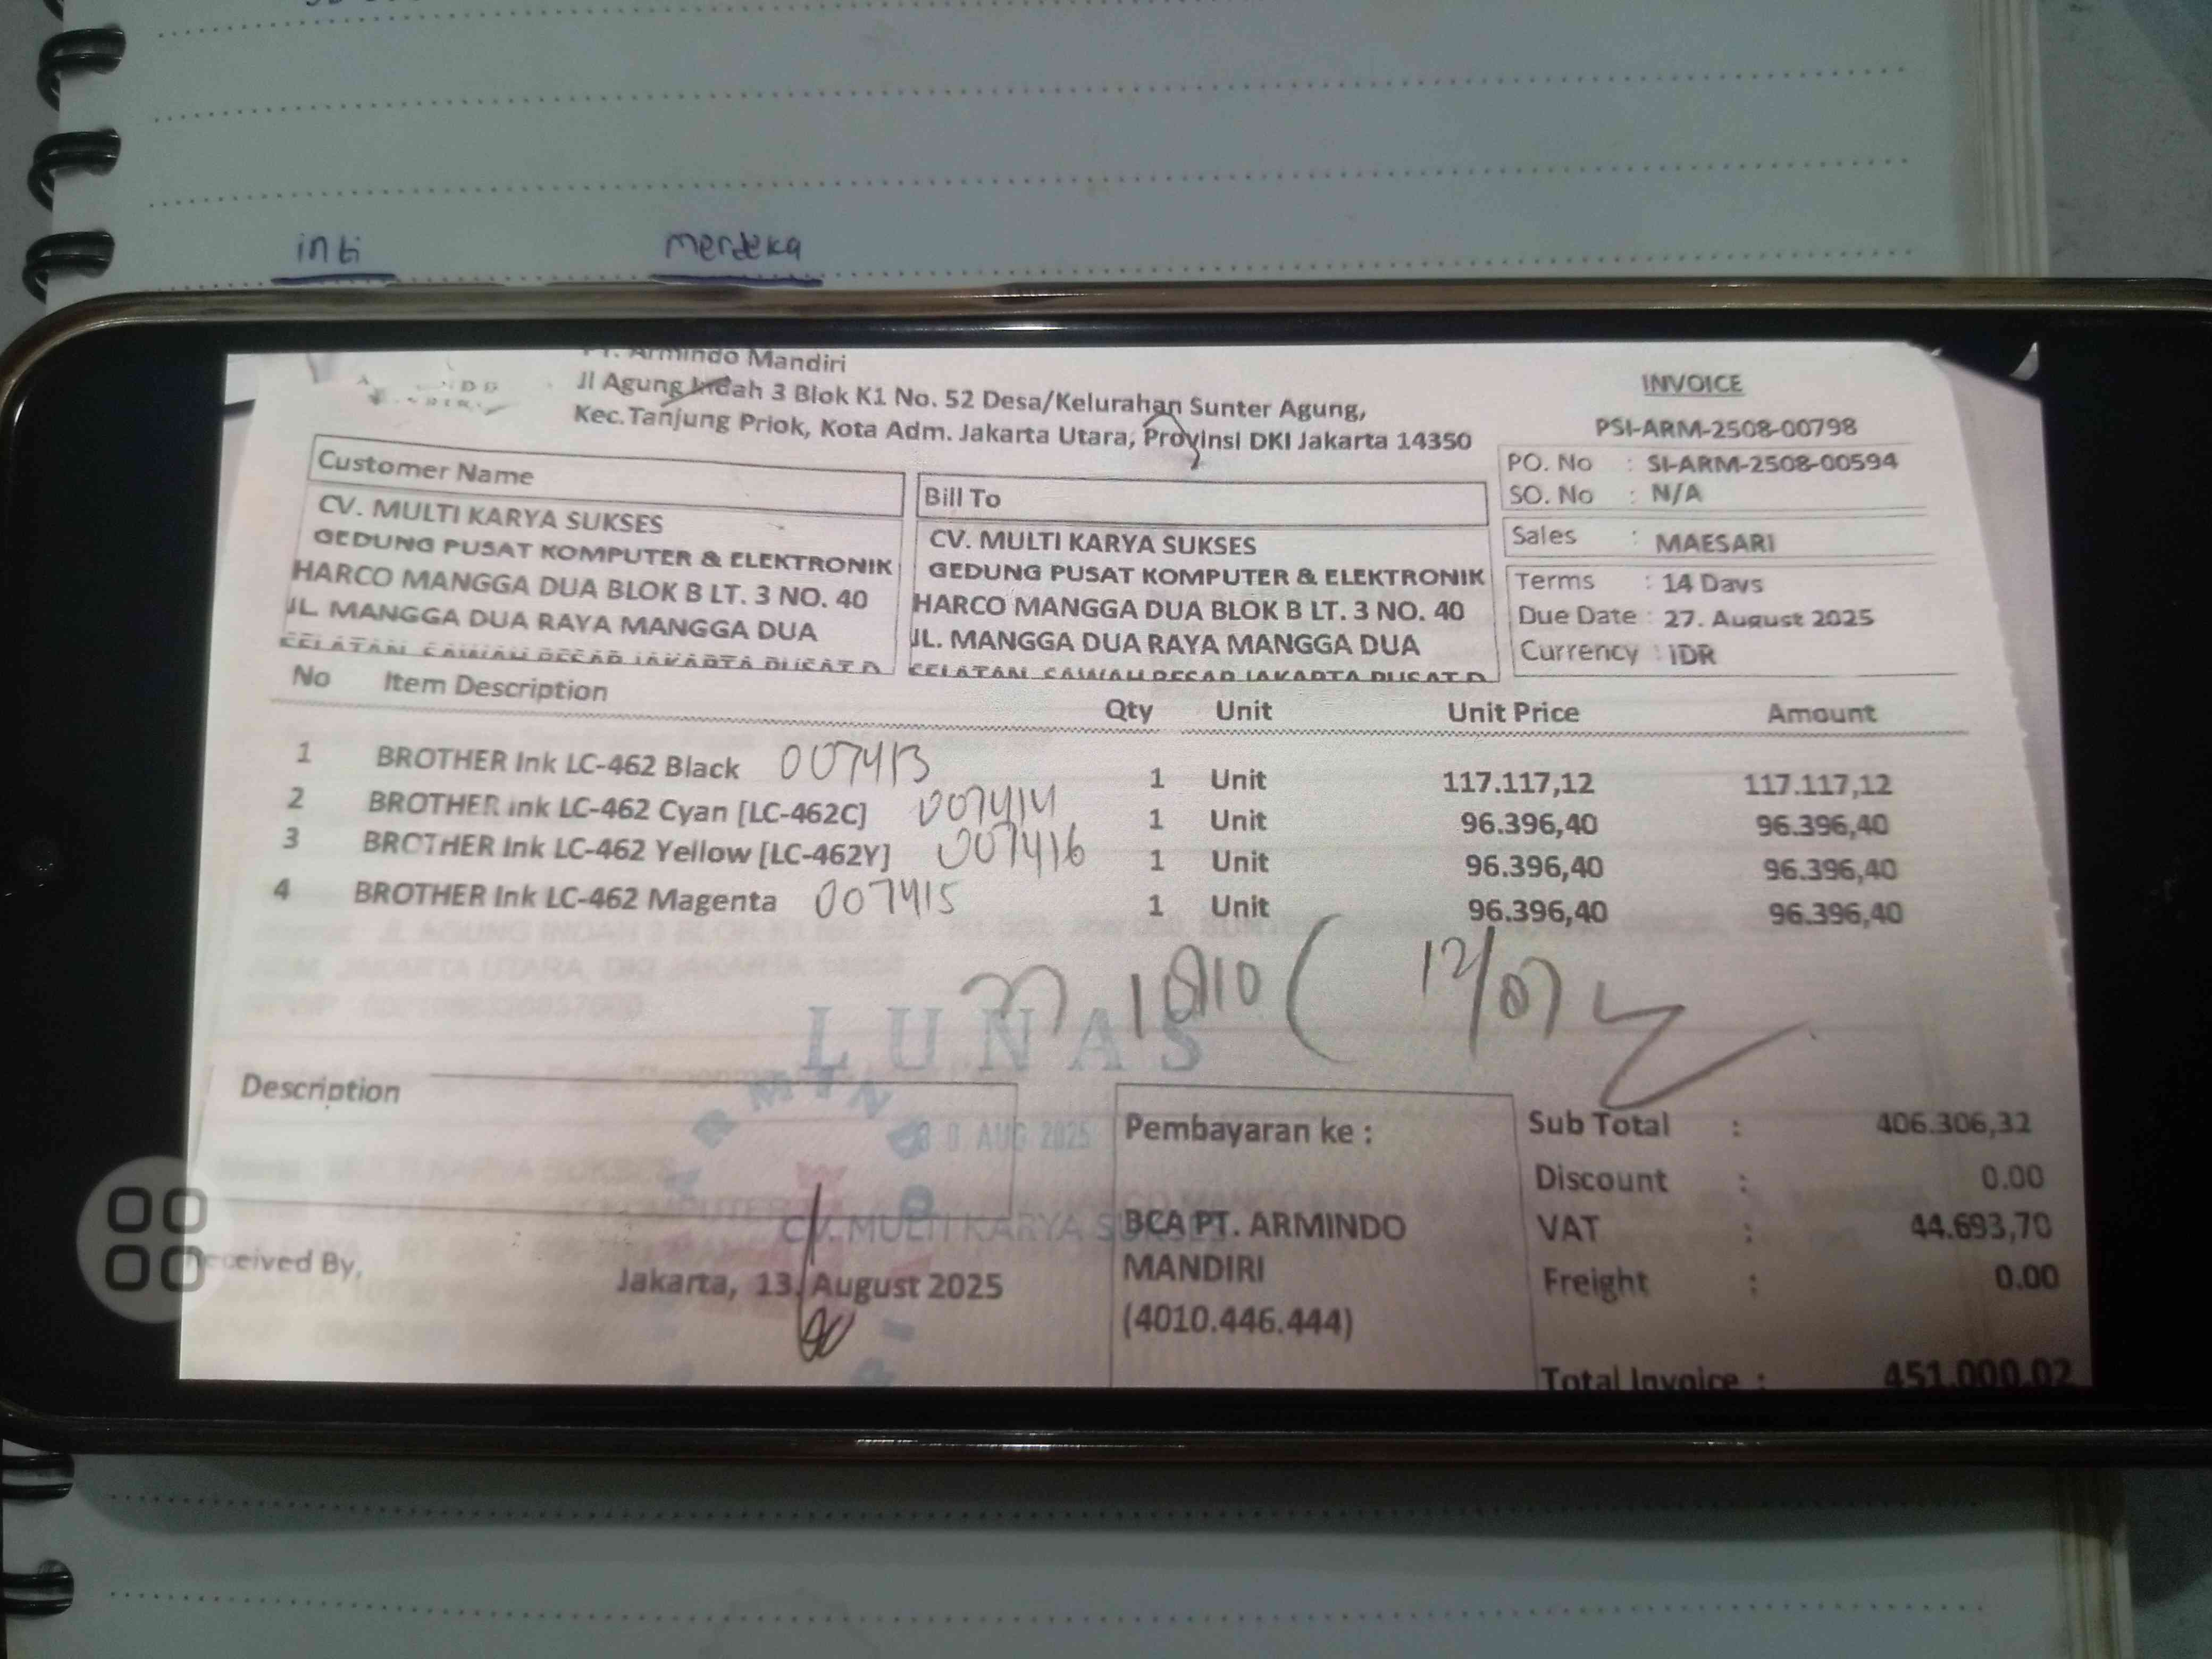 inti merdeka
PT. Armindo Mandiri
Jl Agung Indah 3 Blok K1 No. 52 Desa/Kelurahan Sunter Agung,
Kec.Tanjung Priok, Kota Adm. Jakarta Utara, Provinsi DKI Jakarta 14350
INVOICE
PSI-ARM-2508-00798
PO. No : SI-ARM-2508-00594
SO. No : N/A
Sales : MAESARI
Terms : 14 Days
Due Date : 27. August 2025
Currency : IDR
Customer Name
CV. MULTI KARYA SUKSES
GEDUNG PUSAT KOMPUTER & ELEKTRONIK
HARCO MANGGA DUA BLOK B LT. 3 NO. 40
JL. MANGGA DUA RAYA MANGGA DUA
SELATAN, SAWAH BESAR JAKARTA PUSAT D
Bill To
CV. MULTI KARYA SUKSES
GEDUNG PUSAT KOMPUTER & ELEKTRONIK
HARCO MANGGA DUA BLOK B LT. 3 NO. 40
JL. MANGGA DUA RAYA MANGGA DUA
SELATAN, SAWAH BESAR JAKARTA PUSAT D
No Item Description Qty Unit Unit Price Amount
1 BROTHER Ink LC-462 Black 007413 1 Unit 117.117,12 117.117,12
2 BROTHER Ink LC-462 Cyan [LC-462C] 007414 1 Unit 96.396,40 96.396,40
3 BROTHER Ink LC-462 Yellow [LC-462Y] 007416 1 Unit 96.396,40 96.396,40
4 BROTHER Ink LC-462 Magenta 007415 1 Unit 96.396,40 96.396,40
LUNAS
AUG 2025
CV. MULTI KARYA
Description
Received By,
Jakarta, 13. August 2025
Pembayaran ke :
BCA PT. ARMINDO
MANDIRI
(4010.446.444)
Sub Total : 406.306,32
Discount : 0.00
VAT : 44.693,70
Freight : 0.00
Total Invoice : 451.000,02